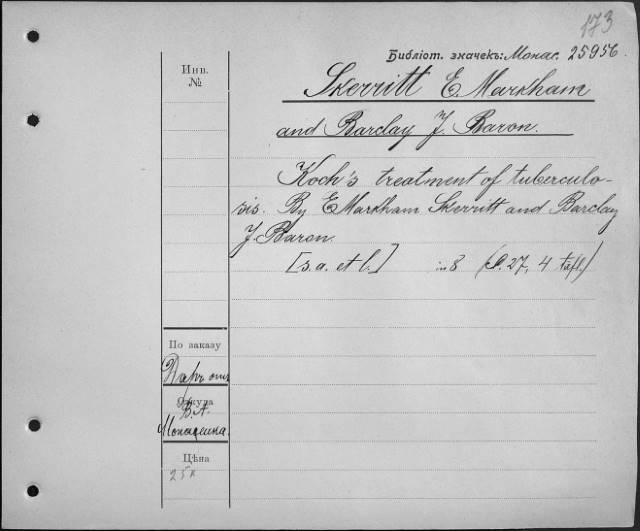 173
Библіот. значекъ: Монас. 25956
Инв.
№
Skerritt E. Markham
and Barclay J. Baron.
Koch's treatment of tuberculo-
sis. By E Markham Skerritt and Barclay
J. Baron.
[s. a. et l.] in 8 (P. 27, 4 tafl.)
По заказу
Даръ отъ
Откуда
В. А.
Монасеина.
Цѣна
25к